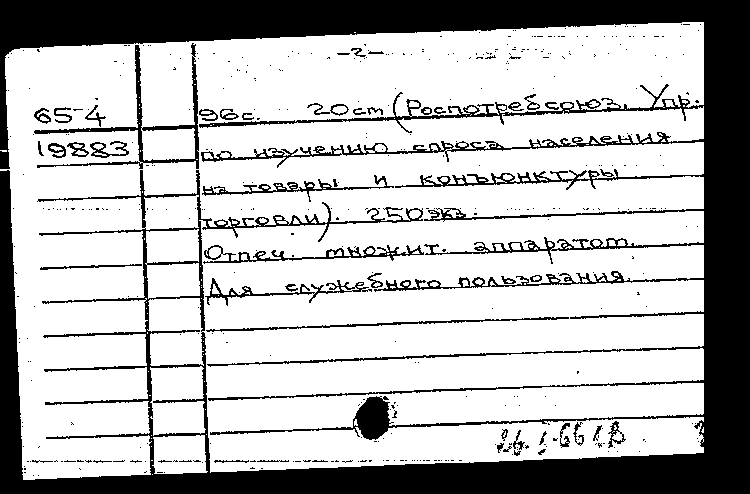 -2-
65-4 96с. 20 cm (Роспотребсоюз. Упр.
19883 по изучению спроса населения
на товары и конъюнктуры
торговли). 250 экз.
Отпеч. множит. аппаратом.
Для служебного пользования.
26.I-66